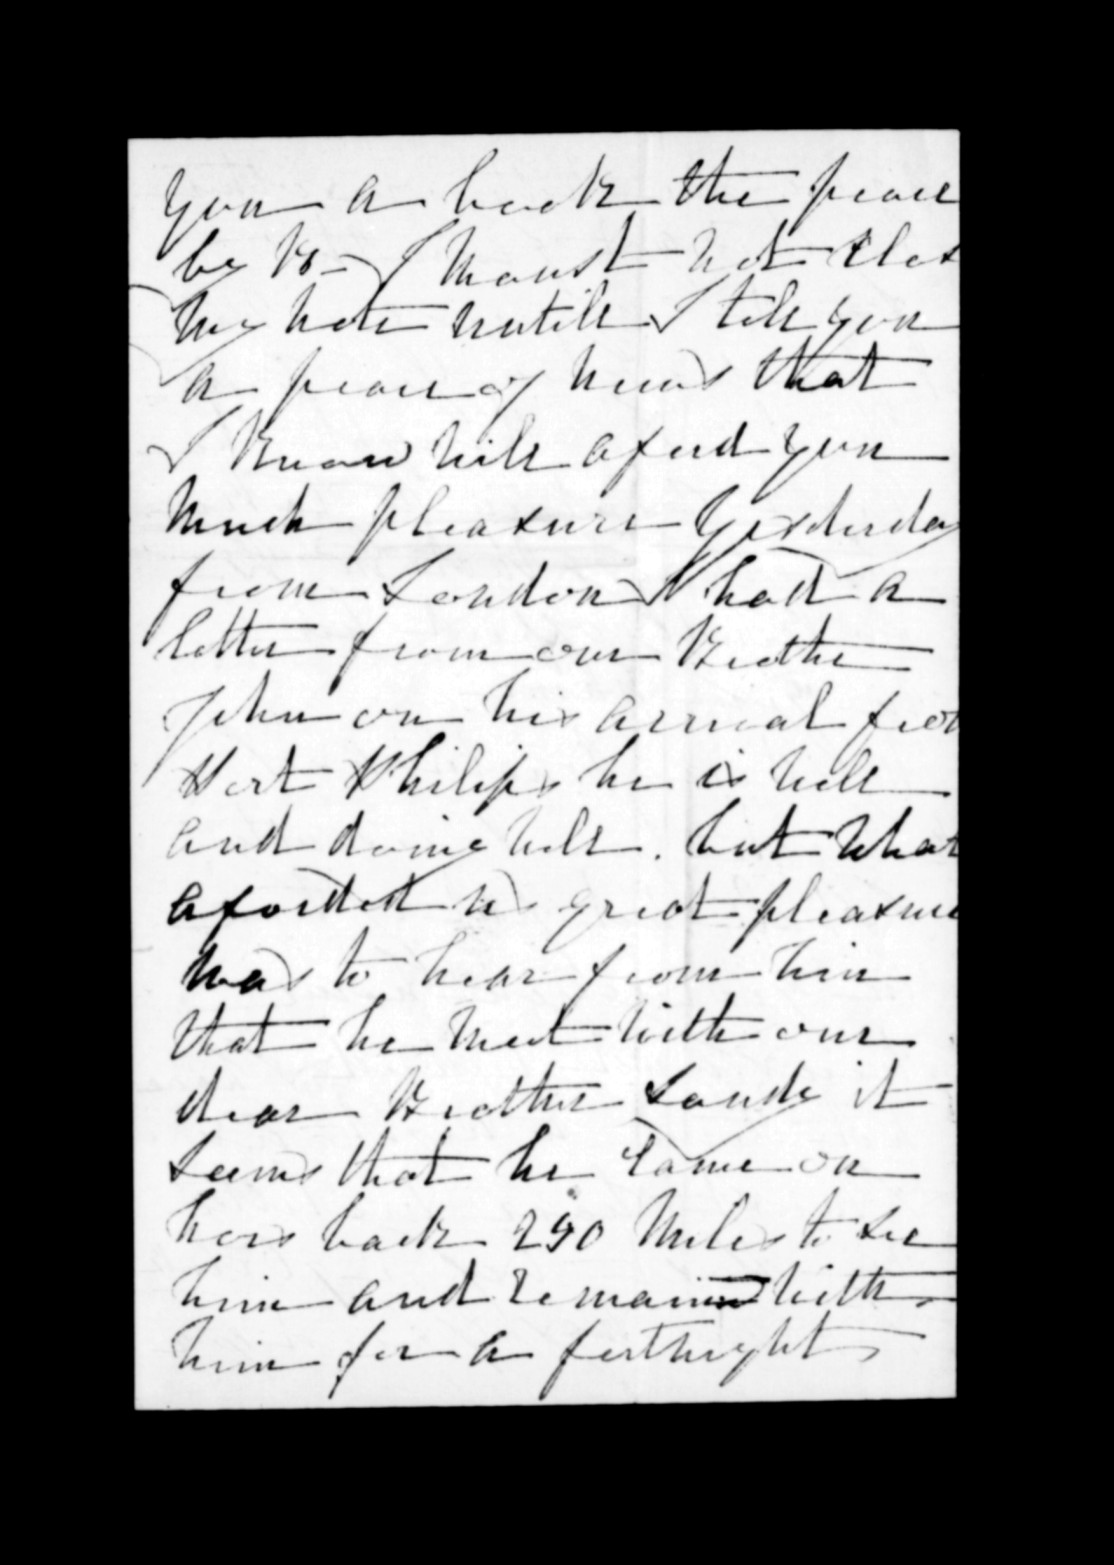 you a book the peace
by B- I moust not clos
my note untill I tell you
a peace of news that
I know will aford you
much pleasure Yesterday
from London I had a
letter from our Brother
John on his arrival from
Port Philips he is well
and doing well. but what
aforded us great pleasure
was to hear from him
that he met with our
dear Brother Sandy it
seems that he came on
hors back 290 miles to see
him and remained with
him for a fortnight